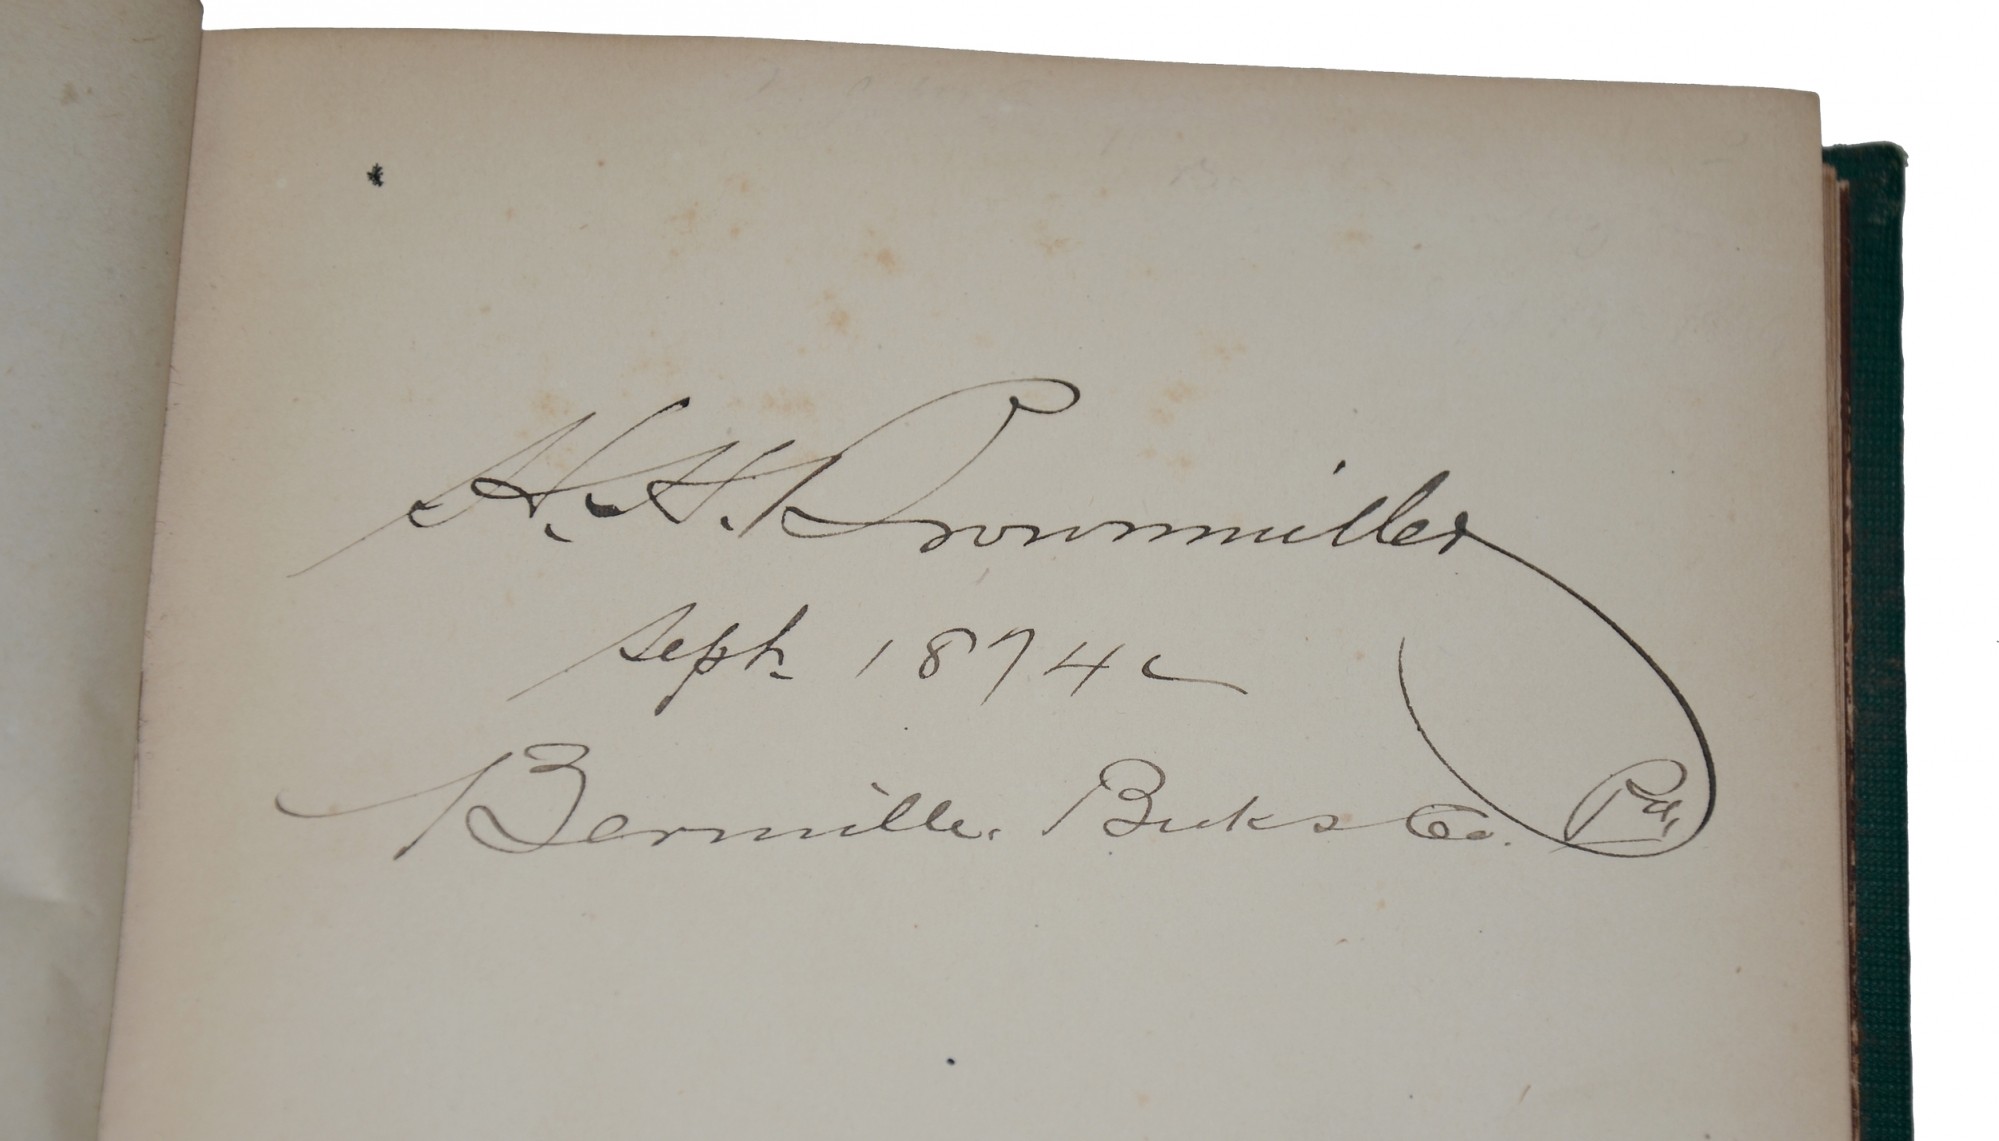 H. H. Brownmiller
Sept. 1874
Bernville. Berks Co. Pa,